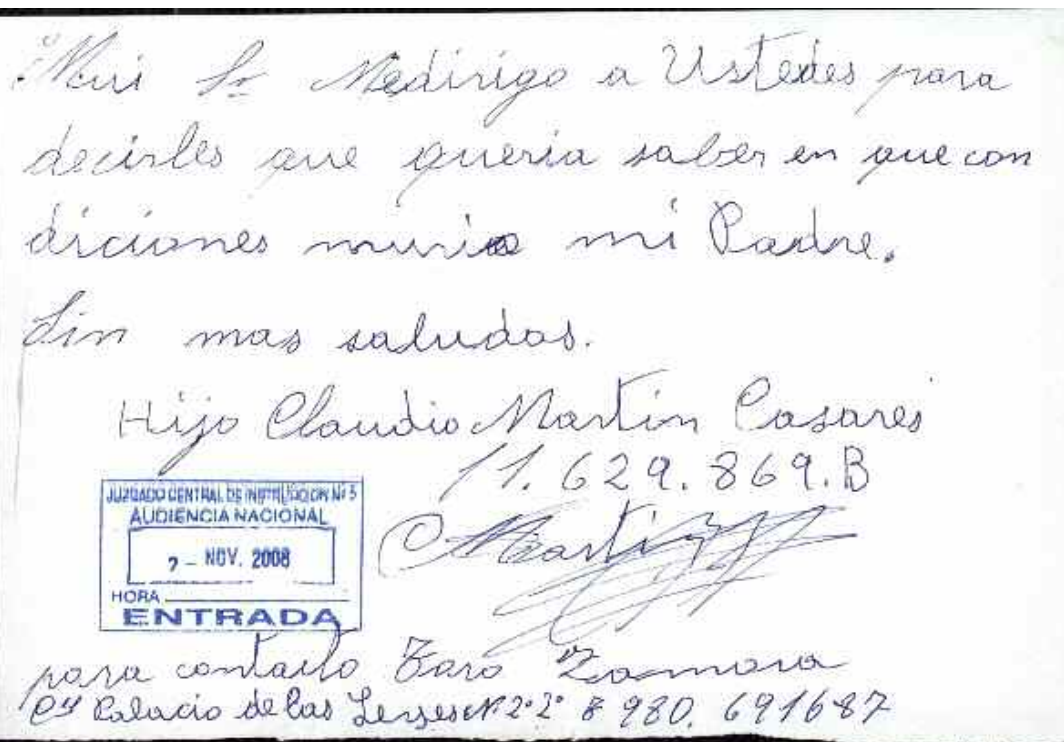 Mui Sr Medirigo a Ustedes para
decirles que queria saber en que con
diciones murio mi Padre.
Sin mas saludos.
Hijo Claudio Martin Casares
11.629.869.B
JUZGADO CENTRAL DE INSTRUCCION Nº 5
AUDIENCIA NACIONAL
2 - NOV. 2008
HORA
ENTRADA
C Martin
para contacto Toro Zamora
Cy Palacio de las Leyes Nº 2º 2º 980. 691687